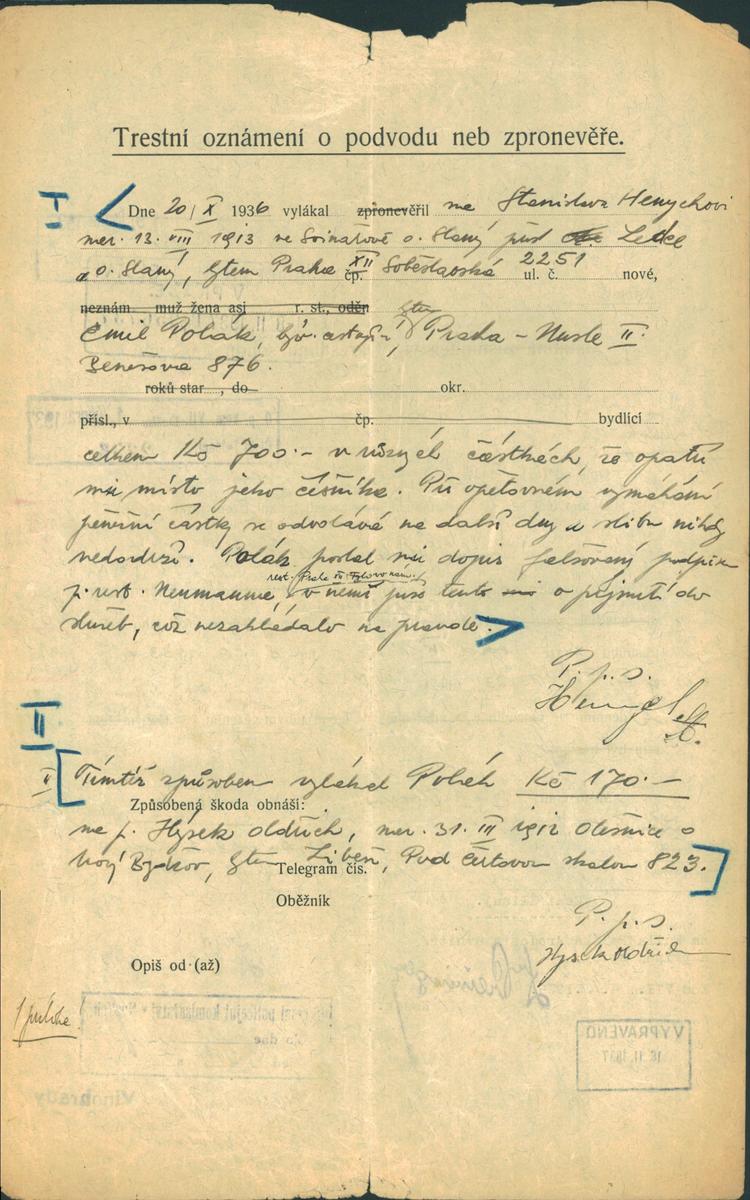 Trestní oznámení o podvodu neb zpronevěře.
I
Dne 20/X 1936 vylákal zpronevěřil na Stanislavu Henychovi
nar. 13. VIII 1913 ve o. Slaný přísl. Ledce
o. Slaný, bytem Praha XII čp. Soběslavská 2251 ul. č. nové,
neznám muž žena asi r. st., oděn
Emil Polák, býv. bytem Praha - Nusle II.
Benešova 876.
roků star , do okr.
přísl., v čp. bydlící
celkem Kč 700.- v různých částkách, že opatří
mi místo jeho číšníka. Při opětovném vymáhání
peněžní částky se odvolává na další dny a slibu nikdy
nedodrží. Polák poslal mi dopis falsovaný podpisem
p. rest. Neumanna, v němž jsem tento o přijmutí do
rest. Praha XII
služeb, což nezakládalo na pravdě.
P. p. s.
II
Tímtéž způsobem vylákal Polák Kč 170.-
Způsobená škoda obnáší:
na p. Hýsek Oldřich, nar. 31. III 1912 Olešnice o
Nový Bydžov, bytem Libeň, Pod Čertovou skalou 823.
Telegram čís.
Oběžník
P. p. s.
Hýsek Oldřich
Opiš od (až)
1 příloha
VYPRAVENO
Vinohrady